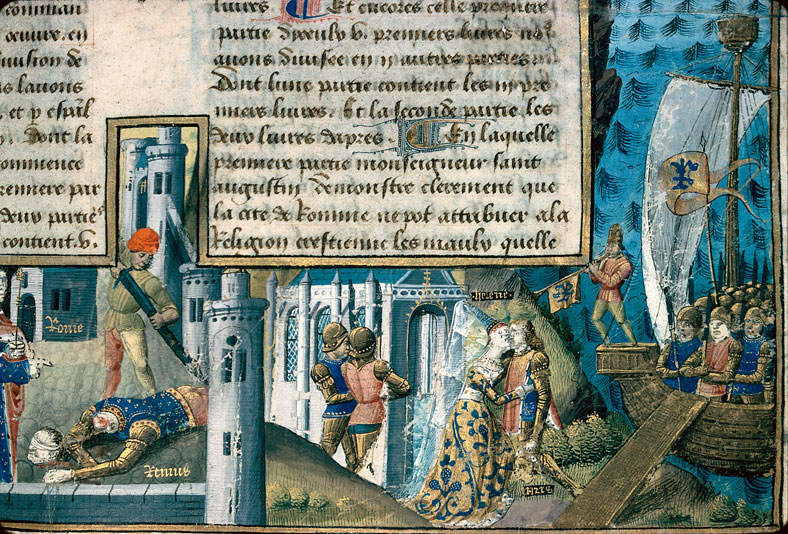 comman
oeuure. en
diuision de
s lauons
. et p espãl
. Dont la
commence
remiere par
deux parties
contient. v.
liures Et encores celle premiere
partie dyceulx v. premiers liures
auons diuisee en ii autres parties
Dont lune partie contient les iii pre
miers liures. Et la seconde partie les
deux liures dapres. En laquelle
premiere partie monseigneur saint
augustin demonstre clerement que
la cite de Romme ne pot attribuer ala
Religion crestienne les maulx quelle
Rome
Remus
helene